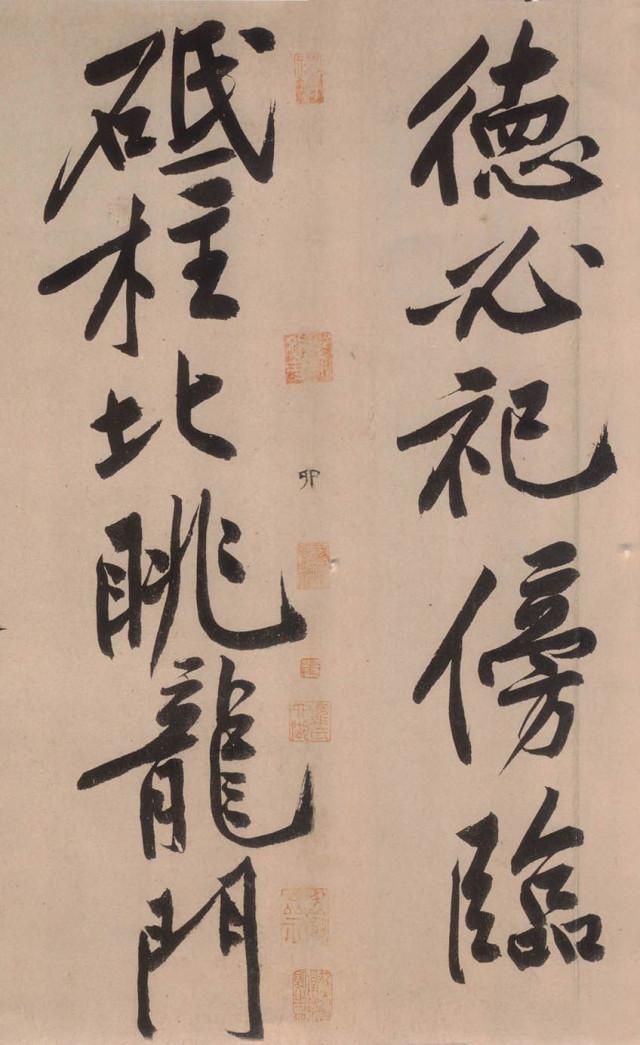 德必祀傍臨
卯
砥柱北眺龍門